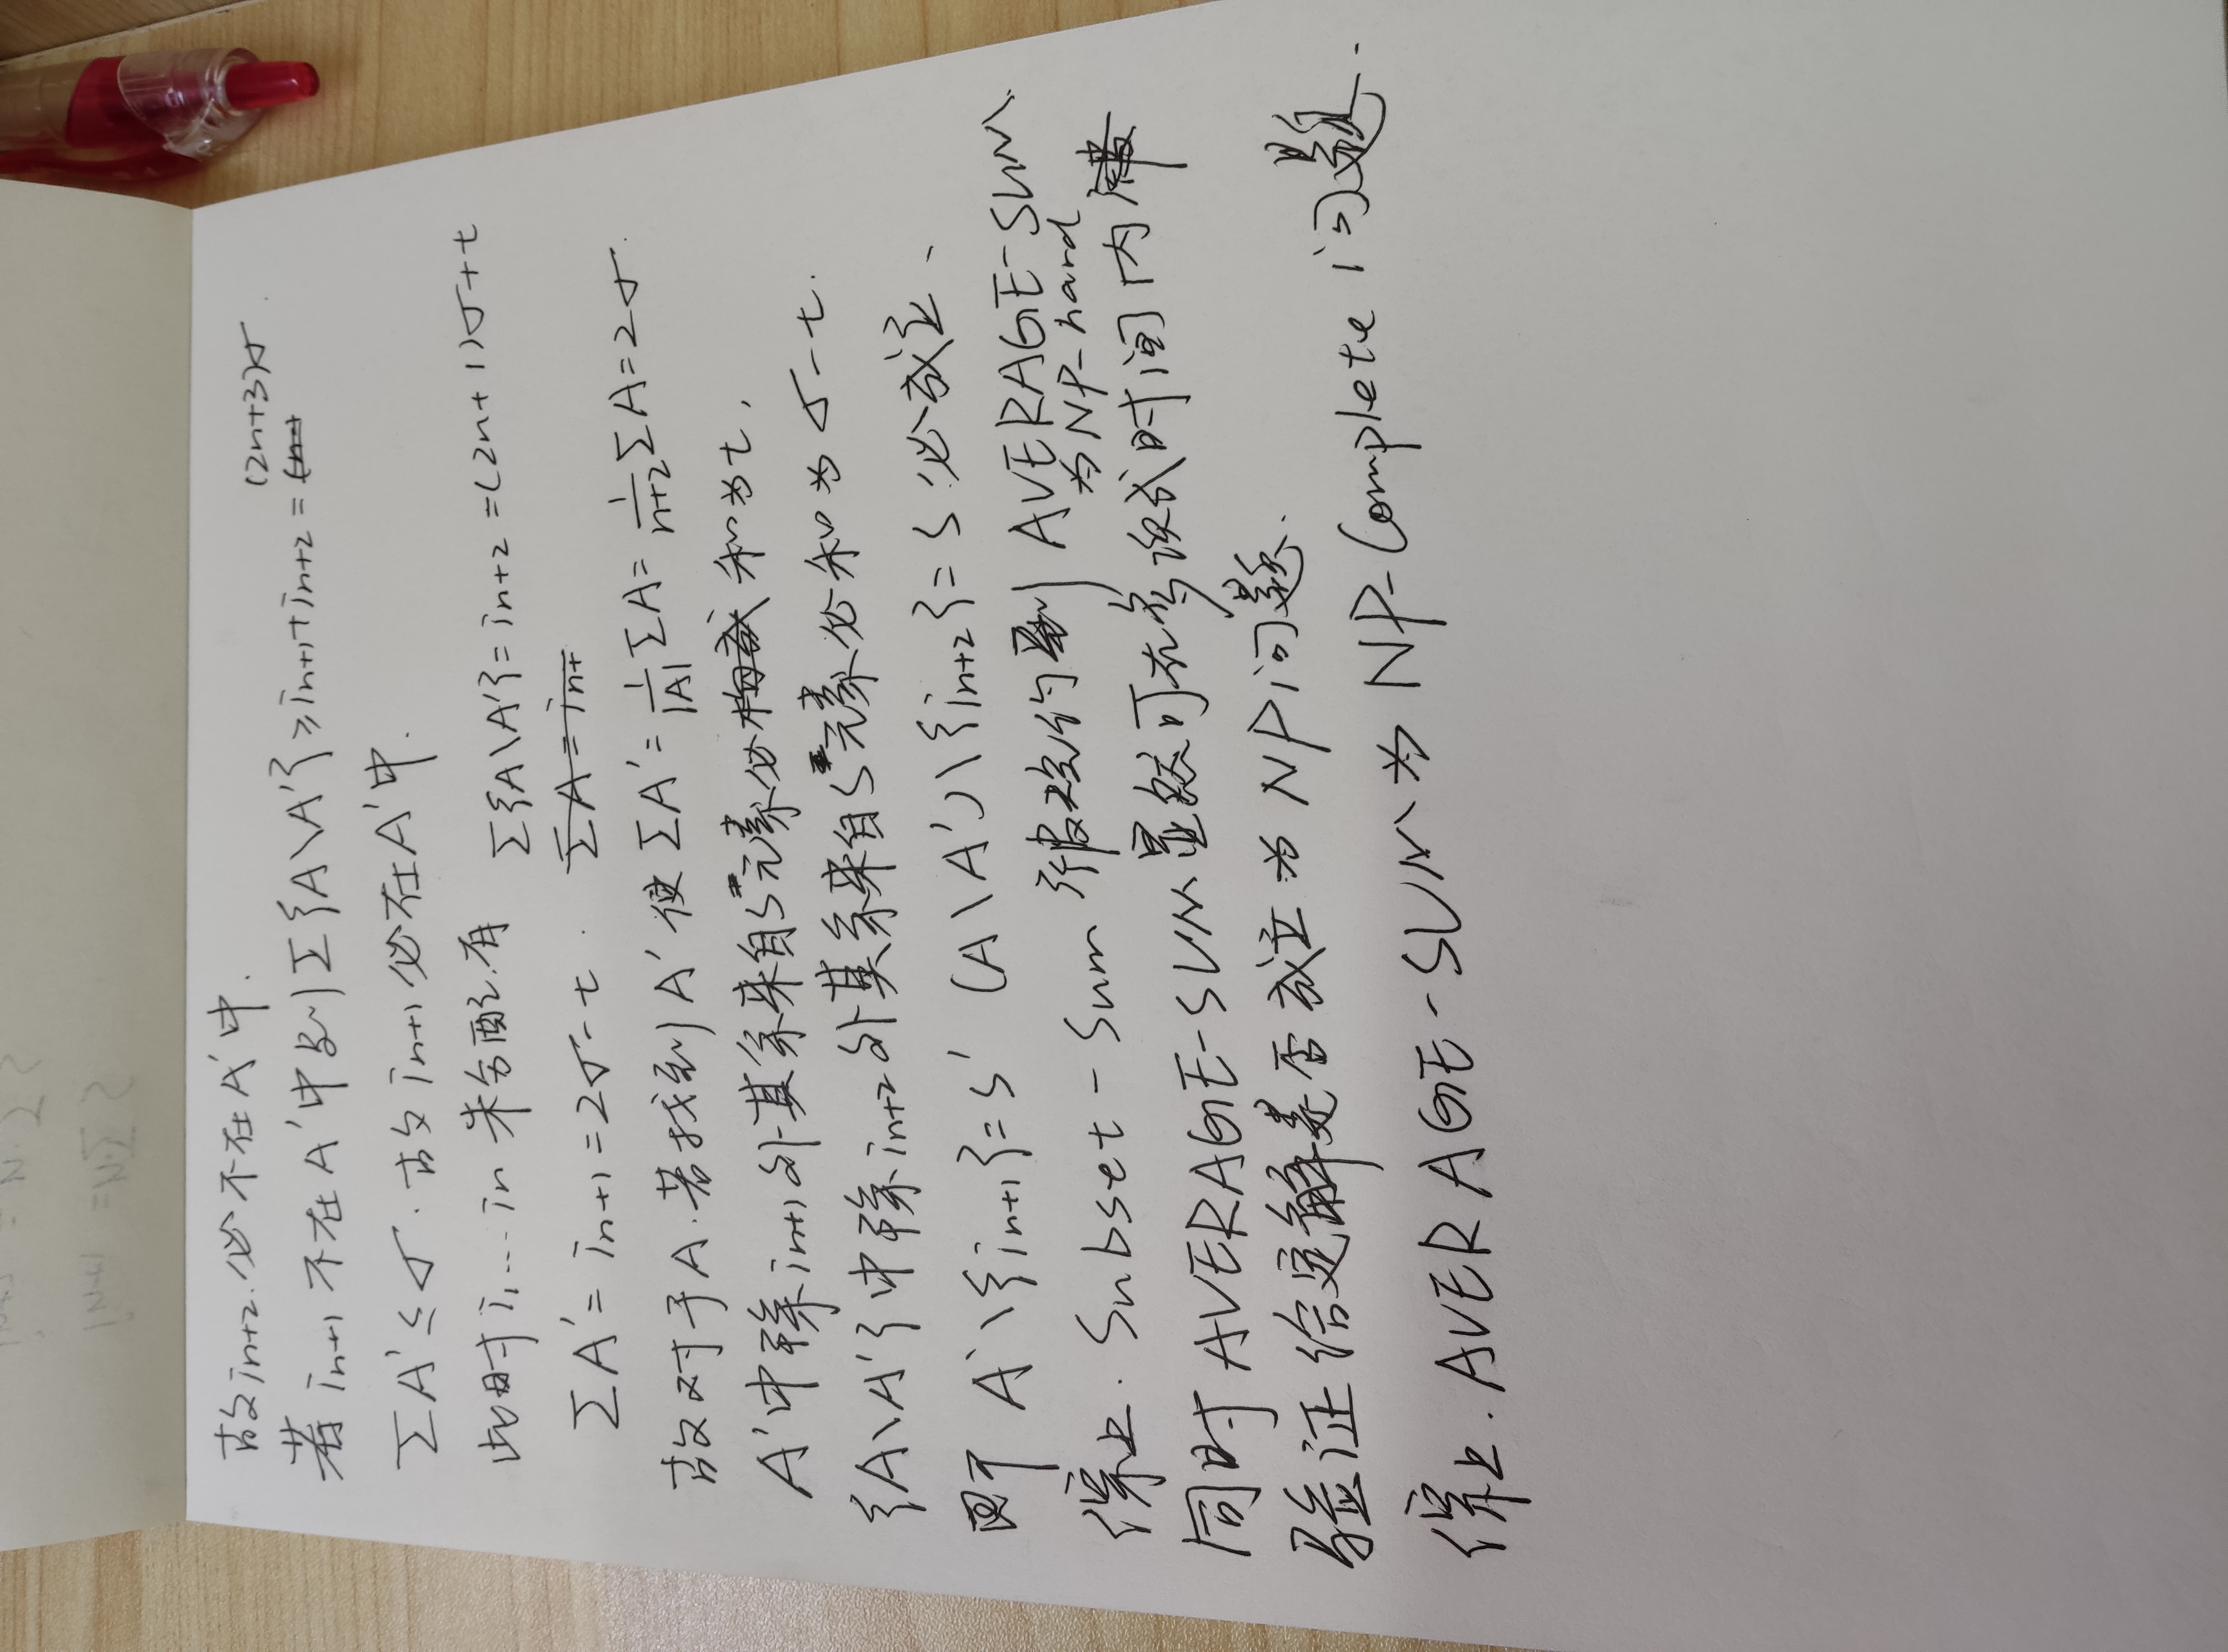 故 in+2 必不在A'中.
若 in+1 不在A'中则 Σ{A\A'} ≥ in+1 + in+2 = (2n+3)σ.
ΣA' ≤ σ. 故 in+1 必在A'中.
此时 i1...in 未分配.有 Σ{A\A'} = in+2 = (2n+1)σ+t
ΣA' = in+1 = 2σ-t.
故对于A.若找到A' 使 ΣA' = 1/|A| ΣA = 1/(n+2) ΣA = 2σ.
A'中除 in+1 外其余来自S元素必和为t,
{A\A'}中除 in+2 外其余来自S元素必和为σ-t.
即 A'\{in+1} = S' (A\A')\{in+2} = S 必成立、
综上. Subset-Sum 被规约到 AVERAGE-SUM 为NP-hard
同时 AVERAGE-SUM 显然可在多项式时间内
验证给定解是否成立为NP问题.
综上. AVERAGE-SUM 为 NP-Complete 问题.